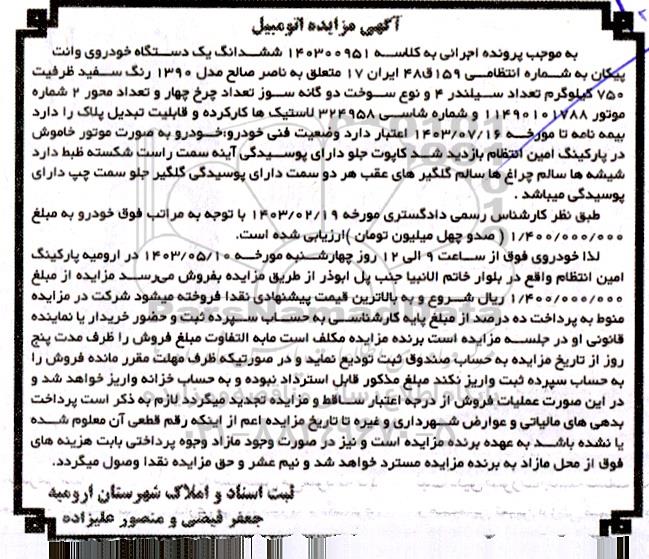 آگهی مزایده اتومبیل
به موجب پرونده اجرائی به کلاسه ۱۴۰۳۰۰۹۵۱ ششدانگ یک دستگاه خودروی وانت
پیکان به شماره انتظامی ۱۵۹ق۴۸ ایران ۱۷ متعلق به ناصر صالح مدل ۱۳۹۰ رنگ سفید ظرفیت
۷۵۰ کیلوگرم تعداد سیلندر ۴ و نوع سوخت دو گانه سوز تعداد چرخ چهار و تعداد محور ۲ شماره
موتور ۱۱۴۹۰۱۰۱۷۸۸ و شماره شاسی ۳۲۴۹۵۸ لاستیک ها کارکرده و قابلیت تبدیل پلاک را دارد
بیمه نامه تا مورخه ۱۴۰۳/۰۷/۱۶ اعتبار دارد وضعیت فنی خودرو:خودرو به صورت موتور خاموش
در پارکینگ امین انتظام بازدید شد کاپوت جلو دارای پوسیدگی آینه سمت راست شکسته ظبط دارد
شیشه ها سالم چراغ ها سالم گلگیر های عقب هر دو سمت دارای پوسیدگی گلگیر جلو سمت چپ دارای
پوسیدگی میباشد .
طبق نظر کارشناس رسمی دادگستری مورخه ۱۴۰۳/۰۲/۱۹ با توجه به مراتب فوق خودرو به مبلغ
۱/۴۰۰/۰۰۰/۰۰۰ ( صدو چهل میلیون تومان )ارزیابی شده است.
لذا خودروی فوق از ساعت ۹ الی ۱۲ روز چهارشنبه مورخه ۱۴۰۳/۰۵/۱۰ در ارومیه پارکینگ
امین انتظام واقع در بلوار خاتم الانبیا جنب پل ابوذر از طریق مزایده بفروش می‌رسد مزایده از مبلغ
۱/۴۰۰/۰۰۰/۰۰۰ ریال شروع و به بالاترین قیمت پیشنهادی نقدا فروخته میشود شرکت در مزایده
منوط به پرداخت ده درصد از مبلغ پایه کارشناسی به حساب سپرده ثبت و حضور خریدار یا نماینده
قانونی او در جلسه مزایده است برنده مزایده مکلف است مابه التفاوت مبلغ فروش را ظرف مدت پنج
روز از تاریخ مزایده به حساب صندوق ثبت تودیع نماید و در صورتیکه ظرف مهلت مقرر مانده فروش را
به حساب سپرده ثبت واریز نکند مبلغ مذکور قابل استرداد نبوده و به حساب خزانه واریز خواهد شد و
در این صورت عملیات فروش از درجه اعتبار ساقط و مزایده تجدید میگردد لازم به ذکر است پرداخت
بدهی های مالیاتی و عوارض شهرداری و غیره تا تاریخ مزایده اعم از اینکه رقم قطعی آن معلوم شده
یا نشده باشد به عهده برنده مزایده است و نیز در صورت وجود مازاد وجوه پرداختی بابت هزینه های
فوق از محل مازاد به برنده مزایده مسترد خواهد شد و نیم عشر و حق مزایده نقدا وصول میگردد.
ثبت اسناد و املاک شهرستان ارومیه
جعفر فیضی و منصور علیزاده
ParsNamadData